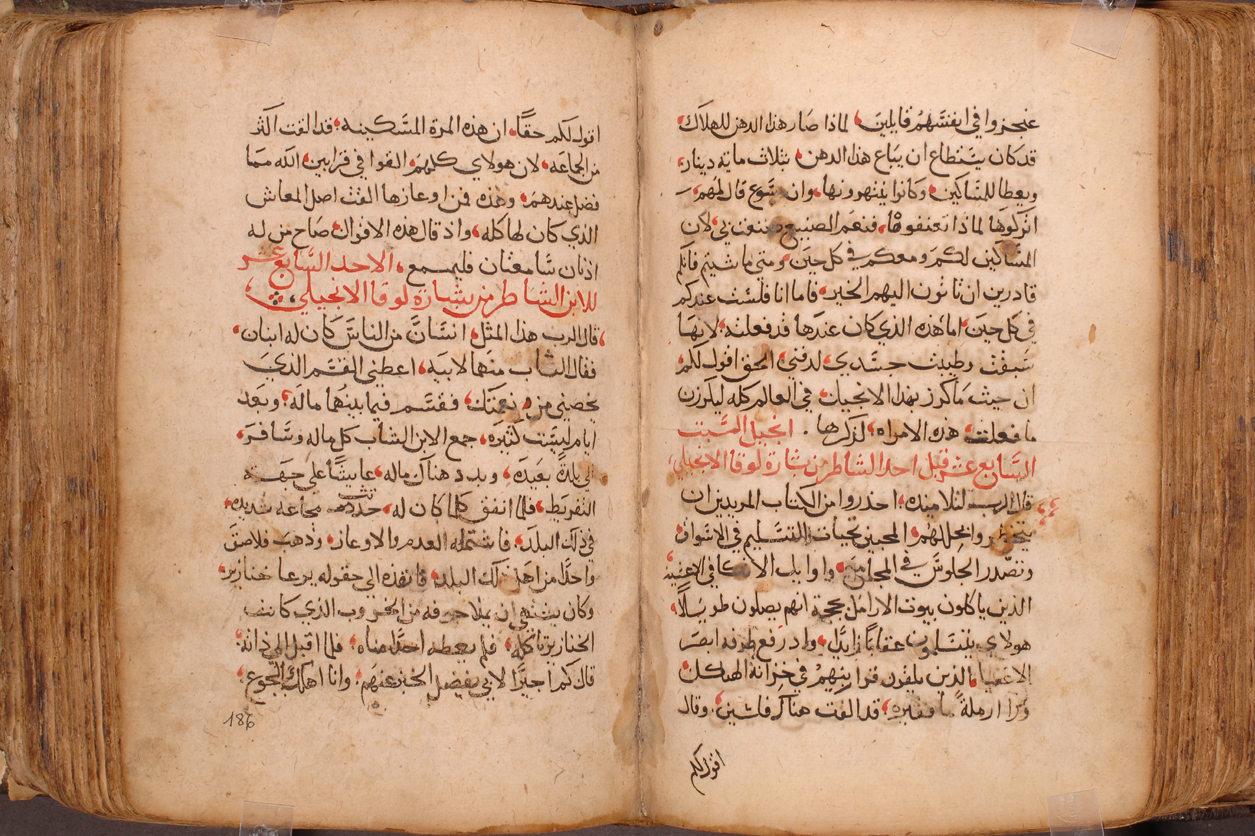 عنجزوا في انفسهم قايلين لماذا صار هذا الدهن للهلاك
قد كان يستطاع ان يباع هذا الدهن بثلاث مايه دينار
ويعطا للمساكين وكانوا ينتهرونها وان يسوع قال لهم
اتركوها لماذا تعنفوها فنعم الصنيع صنعت بي لان
المساكين لكم ومعكم في كل حين ومتى ما شيتم فانكم
قادرين ان تاتون اليهم الخير فاما انا فلست عندكم
في كل حين اما هذه الذي كان عندها قد فعلته لانها
سبقت وطيبت جسدي لدفني الحق اقول لكم
ان حيث ما كرز بهذا الانجيل في العالم كله ليكرزن
ما فعلت هذه الامراه لذكرها انجيل السبت
السابع عشر قبل احد الشاطر من بشارة لوقا الانجيلي
قال الرب لتلاميذه احذروا من الكتاب المريدين ان
وانجللهم المحبين تحيات التسليم في الاسواق
وتصدر الجلوس في المجامع واوايل الاتكا في الاعشيه
الذين ياكلون بيوت الارامل بحجة انهم يصلون طويلاً
هولاي يتسلمون عقاباً زايداً واذ رفع طرفه ابصر
الاغنيا الذين يلقون قرابينهم في خزانة الهيكل
وترا ارملةً ما فقيره قد القت هناك فلسين وقال
اقول لكم
اقول لكم حقاً ان هذه المرة المسكينه قد القت اكثر
من الجماعه لان هولاي كلهم القوا في قرابين الله مما
فضل عندهم وهذه فمن اوعازها القت اصل المعاش
الذي كان لها كله واذ قال هذه الاقوال صاح من له
اذنان سامعتان فليسمع الاحد السابع عشر
للابن الشاطر من بشارة لوقا الانجيلي
قال الرب هذا المثل انسان من الناس كان له ابنان
فقال الشاب منهما لابيه اعطني القسم الذي
يخصني من نعمتك فقسم فيما بينهما ماله وبعد
ايام ليست كثيره جمع الابن الشاب كل ماله وسافر
الى بلدة بعيده وبدد هناك ماله عايشاً على جيهة
التفريط فلما انفق كلما كان له حدثت مجاعه شديده
في ذلك البلد فاشتمله العدم والاوعاز وذهب فلاصق
واحداً من اهل ذلك البلد فانفذه الى حقوله يرعا خنازير
وكان يشتهي ان يملا جوفه من الخروب الذي كانت
الخنازير تاكله فلم يعطه احداً مناه فلما اقبل الى ذاته
قال كم اجيراً لابي يفضل الخبز عنهم وانا اهلك بالجوع
186